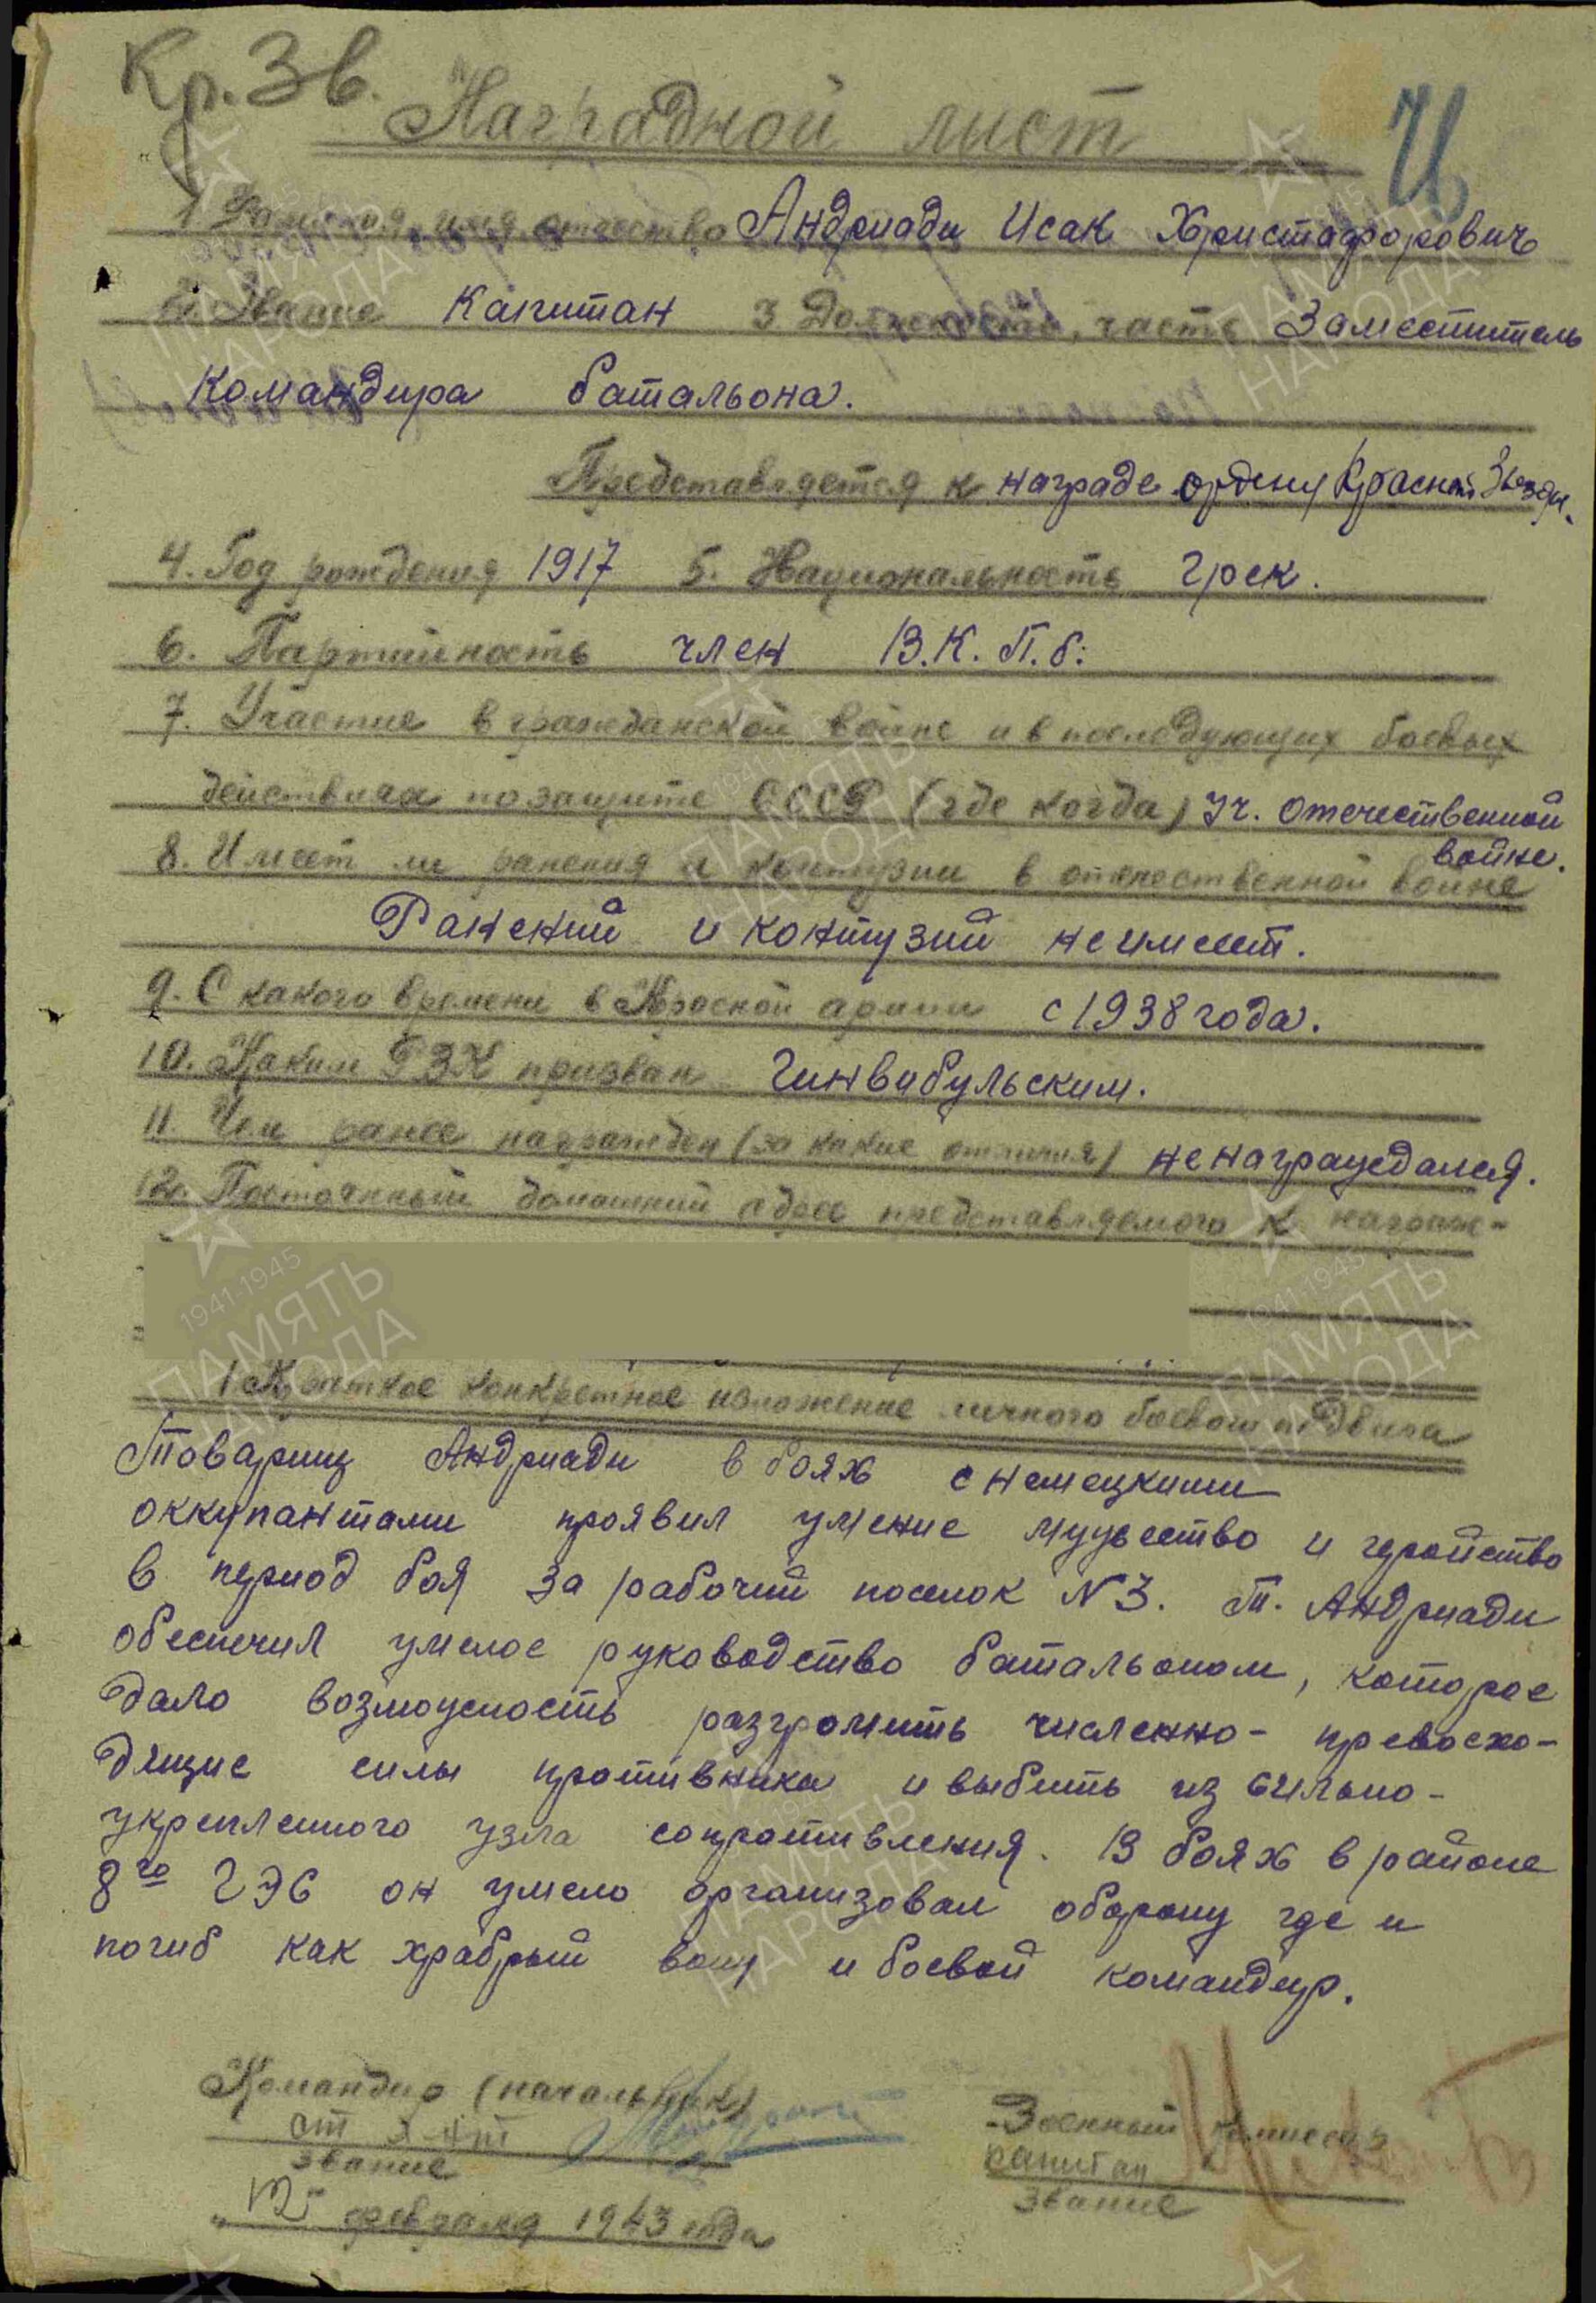 Кр. Зв.
Наградной лист
1 Фамилия, имя, отчество Андриади Исак Христафорович
2. Звание Капитан 3 Должность, часть Заместитель
Командира батальона.
Представляется к награде ордену Красной Звезды.
4. Год рождения 1917 5. Национальность Грек.
6. Партийность член В.К.П.б.
7. Участие в гражданской войне и в последующих боевых
действиях по защите СССР (где когда) Уч. Отечественной
войне.
8. Имеет ли ранения и контузии в отечественной войне
Ранений и контузий не имеет.
9. С какого времени в Красной армии с 1938 года.
10. Каким РВК призван Гинвабульским.
11. Чем ранее награжден (за какие отличия) не награждался.
12. Постоянный домашний адрес представляемого к награж-
1941-1945
ПАМЯТЬ
НАРОДА
1 Краткое конкретное изложение личного боевого подвига
Товарищ Андриади в боях с немецкими
оккупантами проявил умение мужество и геройство
в период боя за рабочий поселок N 3. Т. Андриади
обеспечил умелое руководство батальоном, которое
дало возможность разгромить численно- превосхо-
дящие силы противника и выбить из сильно-
укрепленного узла сопротивления. В боях в районе
8го ГЭС он умело организовал оборону где и
погиб как храбрый воин и боевой командир.
Командир (начальник)
ст л-нт
звание
Военный комиссар
капитан
звание
"12" февраля 1943 года